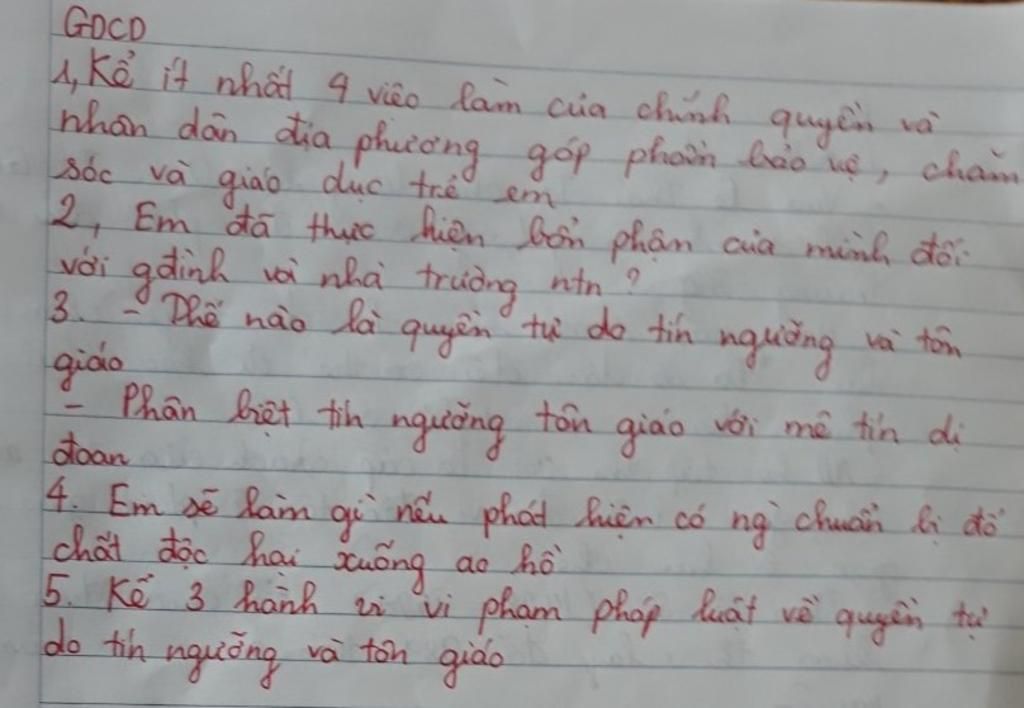 GDCD
1, Kể ít nhất 4 việc làm của chính quyền và
nhân dân địa phương góp phần bảo vệ, chăm
sóc và giáo dục trẻ em
2, Em đã thực hiện bổn phận của mình đối
với gđình và nhà trường ntn?
3. - Thế nào là quyền tự do tín ngưỡng và tôn
giáo
- Phân biệt tín ngưỡng tôn giáo với mê tín dị
đoan
4. Em sẽ làm gì nếu phát hiện có ng` chuẩn bị đổ
chất độc hại xuống ao hồ
5. Kể 3 hành vi vi phạm pháp luật về quyền tự
do tín ngưỡng và tôn giáo